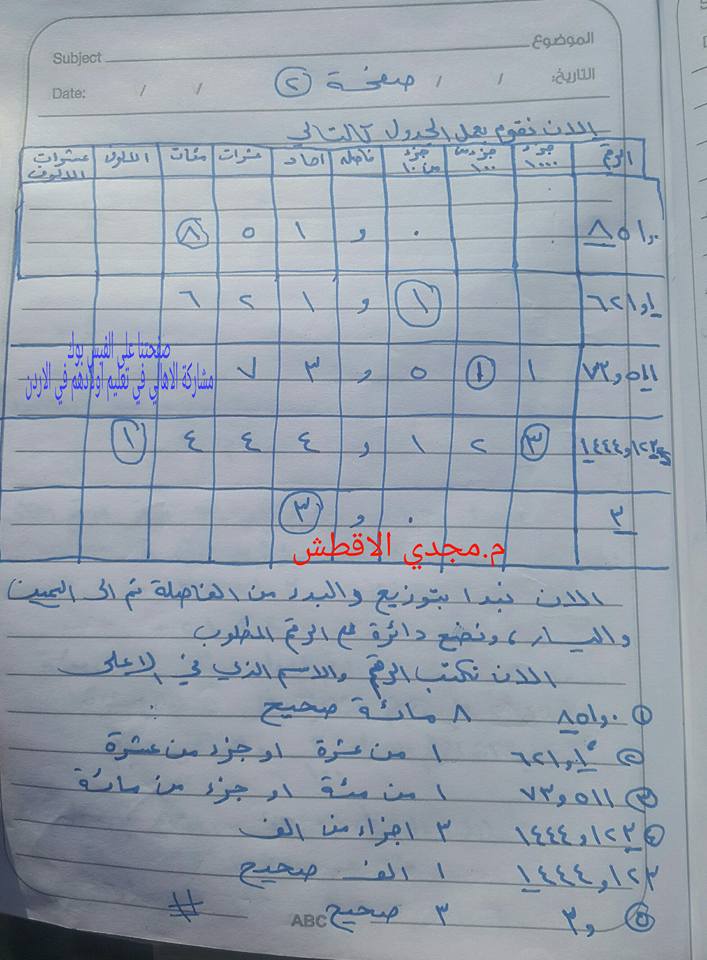 Subject الموضوع
Date: / / صفحة ٢ / / التاريخ:
الان نقوم بعمل الجدول كالتالي
الرقم جزء ١٠٠٠ جزء من ١٠٠ جزء من ١٠ فاصلة احاد عشرات مئات الالوف عشرات الالوف
٨٥١و٠ ٠ و ١ ٥ ٨
٦٢١و١ ١ و ١ ٢ ٦
٧٣و٥١١ ١ ١ ٥ و ٣ ٧
صفحتنا على الفيس بوك
مشاركة الاهالي في تعليم اولادهم في الاردن
١٤٤٤و١٢٣ ٣ ٢ ١ و ٤ ٤ ٤ ١
٣ ٠ و ٣
م.مجدي الاقطش
الان نبدا بتوزيع والبدء من الفاصلة ثم الى اليمين
واليسار، ونضع دائرة على الرقم المطلوب
الان نكتب الرقم والاسم الذي في الاعلى
١ ٨٥١و٠ ٨ مائة صحيح
٢ ٦٢١و١ ١ من عشرة او جزء من عشرة
٣ ٧٣و٥١١ ١ من مئة او جزء من مائة
٤ ١٤٤٤و١٢٣ ٣ اجزاء من الف
١٤٤٤و١٢٣ ١ الف صحيح
٥ ٣و ٣ صحيح #
ABC